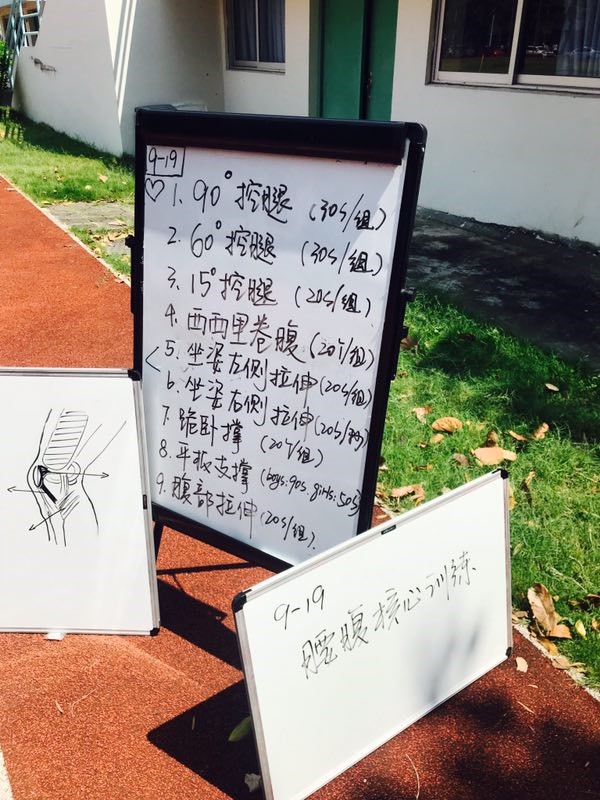 9-19
♡ 1. 90° 控腿 (30s/组)
2. 60° 控腿 (30s/组)
3. 15° 控腿 (20s/组)
4. 西西里卷腹 (20个/组)
5. 坐姿左侧拉伸 (20s/组)
6. 坐姿右侧拉伸 (20s/组)
7. 跪卧撑 (20个/组)
8. 平板支撑 (boys:90s, girls:50s)
9. 腹部拉伸 (20s/组)
9-19
腰腹核心训练